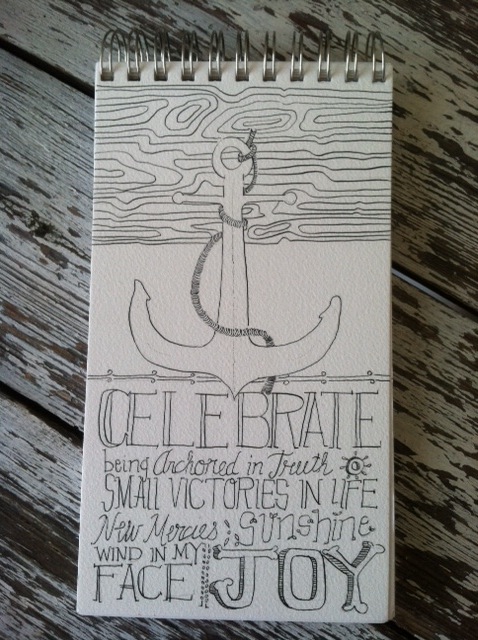 CELEBRATE
being Anchored in Truth
SMALL VICTORIES IN LIFE
New Mercies & Sunshine
WIND IN MY
FACE JOY